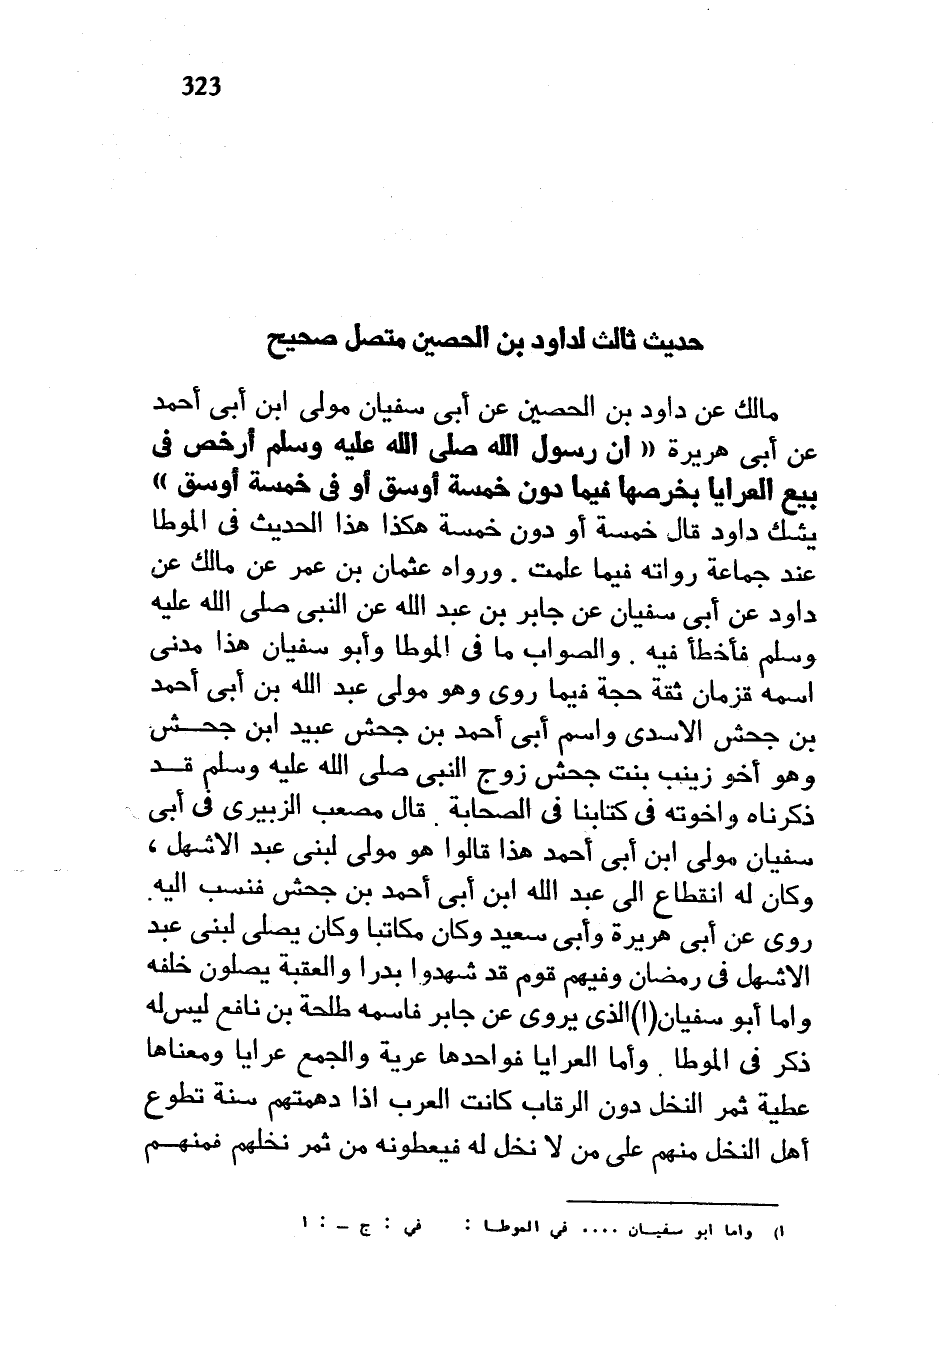 323
حديث ثالث لداود بن الحصين متصل صحيح
مالك عن داود بن الحصين عن أبى سفيان مولى ابن أبى أحمد
عن أبى هريرة « ان رسول الله صلى الله عليه وسلم أرخص فى
بيع العرايا بخرصها فيما دون خمسة أوسق أو فى خمسة أوسق »
يشك داود قال خمسة أو دون خمسة هكذا هذا الحديث فى الموطا
عند جماعة رواته فيما علمت . ورواه عثمان بن عمر عن مالك عن
داود عن أبى سفيان عن جابر بن عبد الله عن النبى صلى الله عليه
وسلم فأخطأ فيه . والصواب ما فى الموطا وأبو سفيان هذا مدنى
اسمه قزمان ثقة حجة فيما روى وهو مولى عبد الله بن أبى أحمد
بن جحش الاسدى واسم أبى أحمد بن جحش عبيد ابن جحش
وهو أخو زينب بنت جحش زوج النبى صلى الله عليه وسلم قد
ذكرناه واخوته فى كتابنا فى الصحابة . قال مصعب الزبيرى فى أبى
سفيان مولى ابن أبى أحمد هذا قالوا هو مولى لبنى عبد الاشهل ،
وكان له انقطاع الى عبد الله ابن أبى أحمد بن جحش فنسب اليه.
روى عن أبى هريرة وأبى سعيد وكان مكاتبا وكان يصلى لبنى عبد
الاشهل فى رمضان وفيهم قوم قد شهدوا بدرا والعقبة يصلون خلفه
واما أبو سفيان(ا)الذى يروى عن جابر فاسمه طلحة بن نافع ليس له
ذكر فى الموطا . وأما العرايا فواحدها عرية والجمع عرايا ومعناها
عطية ثمر النخل دون الرقاب كانت العرب اذا دهمتهم سنة تطوع
أهل النخل منهم على من لا نخل له فيعطونه من ثمر نخلهم فمنهم
ا) واما ابو سفيان .... في الموطا : في : ج ــ : ا